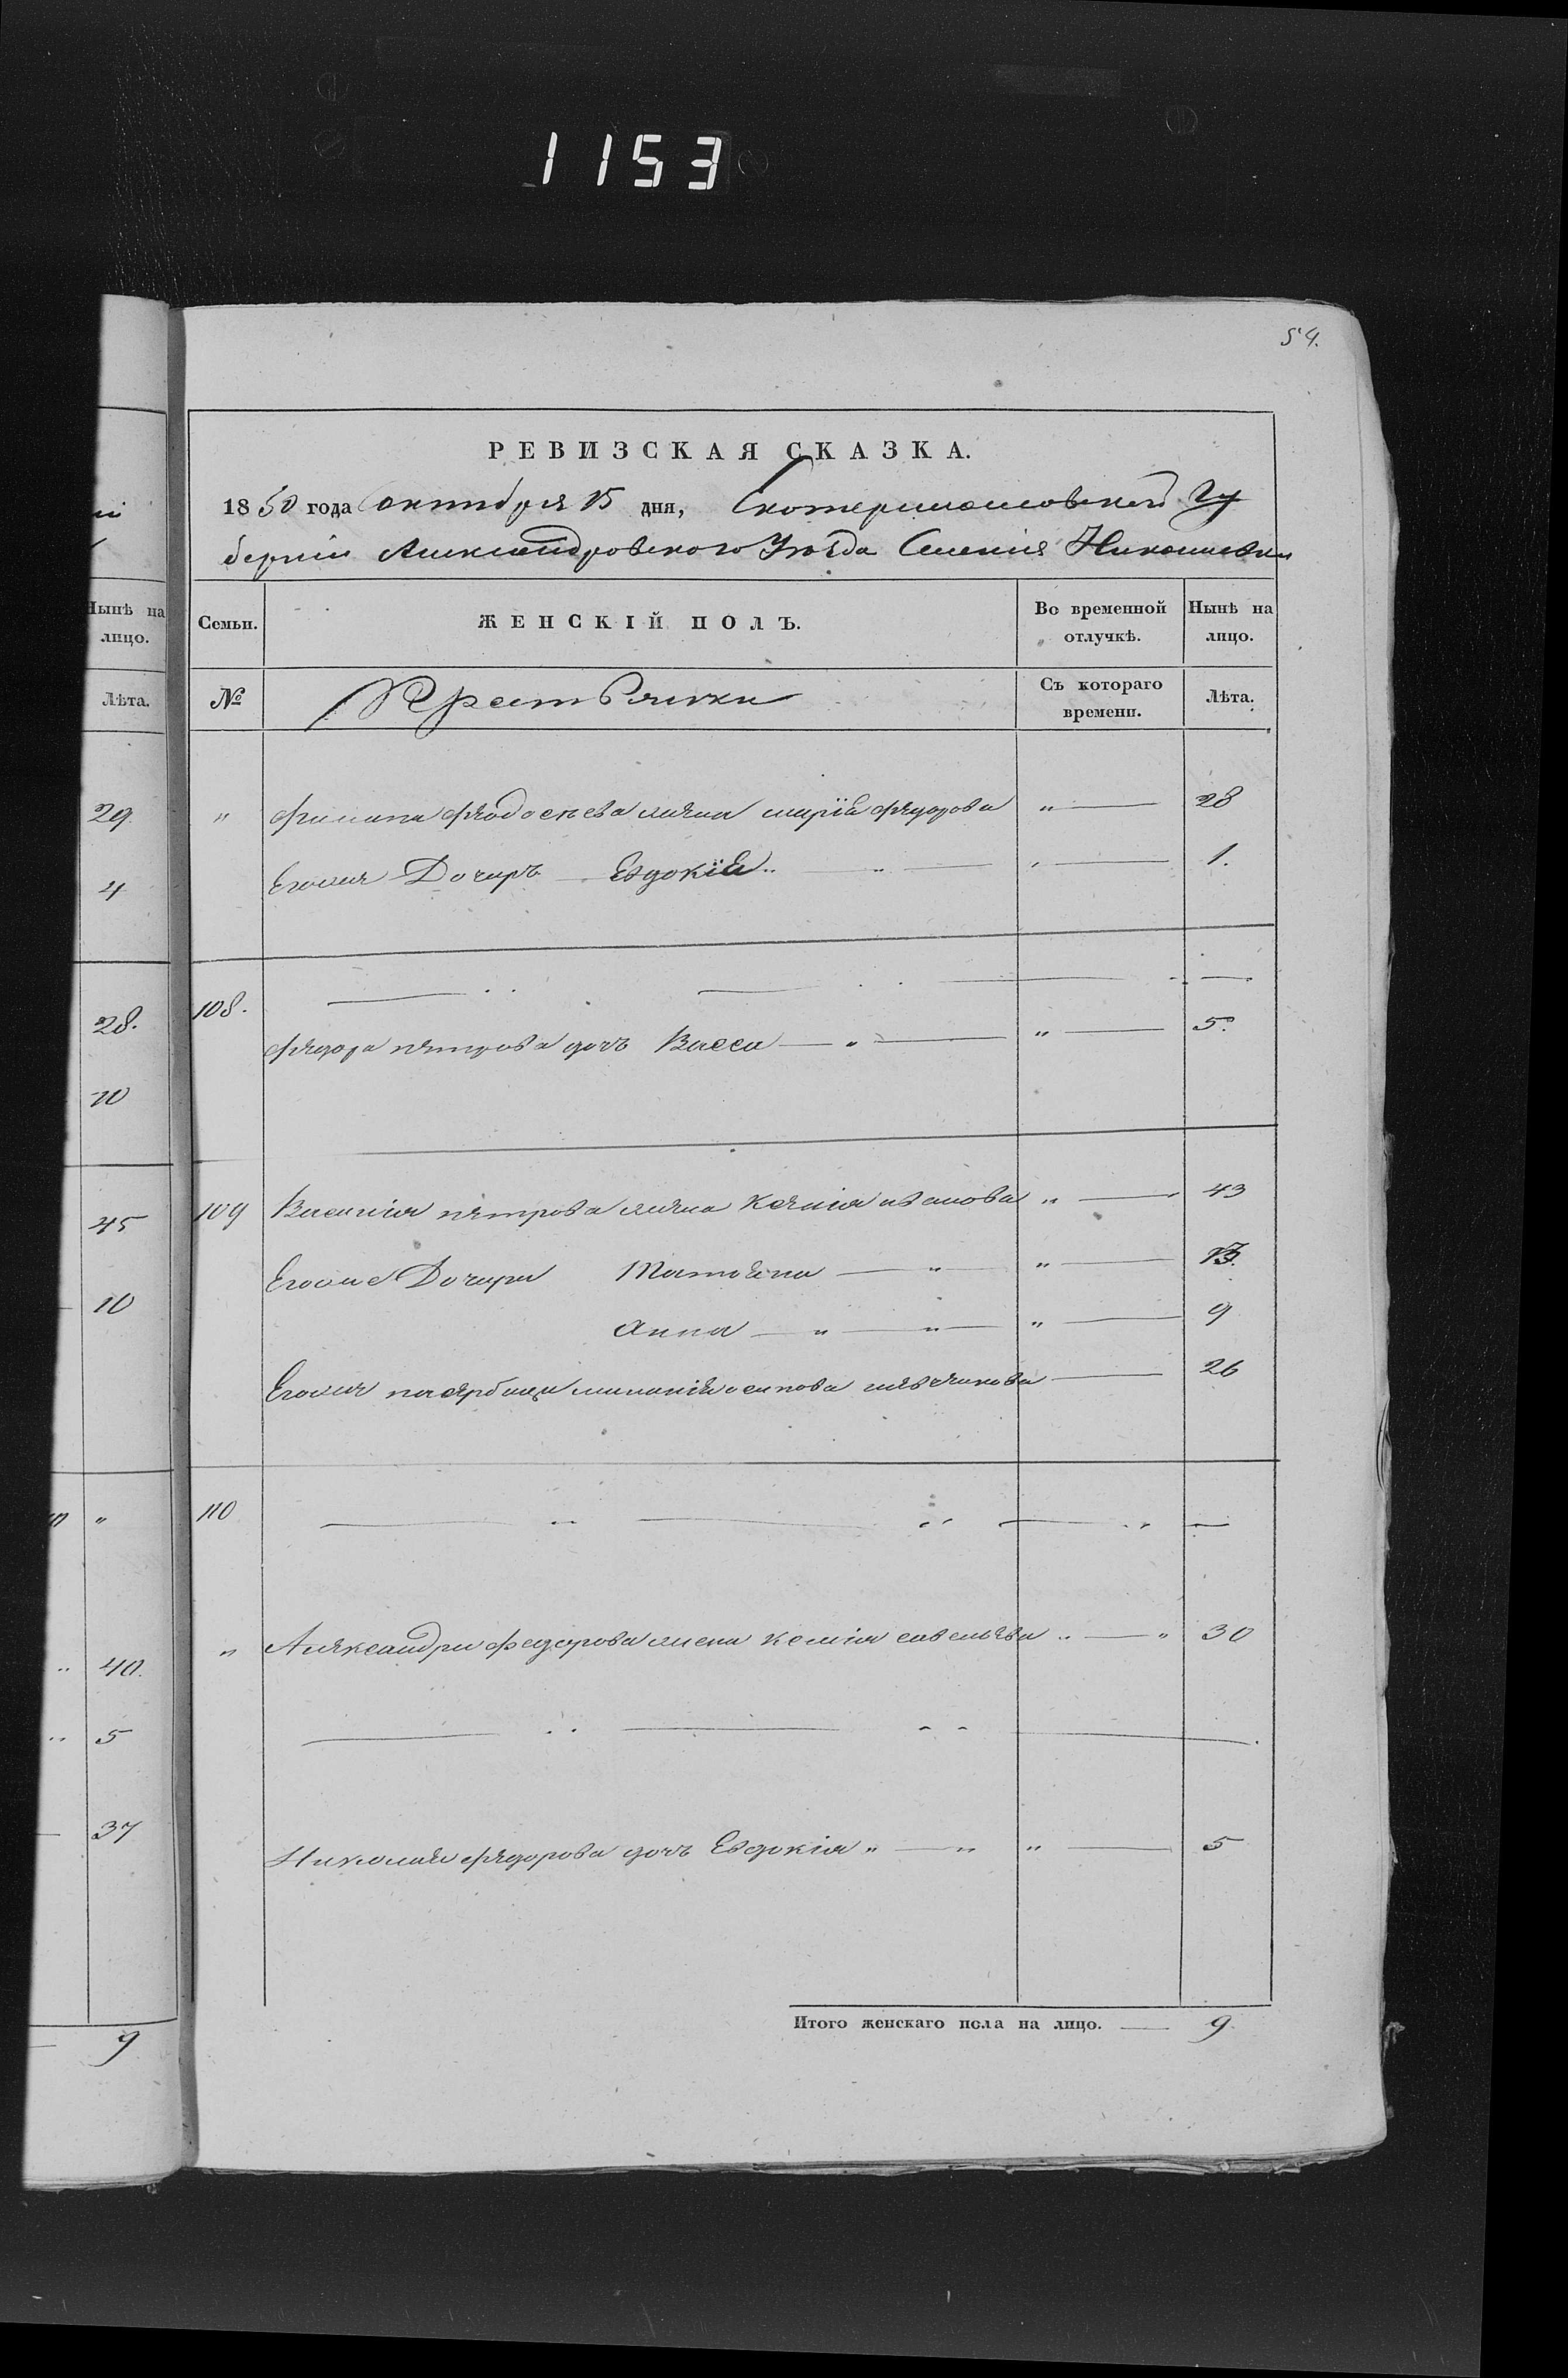 1153
54.
РЕВИЗСКАЯ СКАЗКА.
1850 года октября 15 дня, Екатеринославской Гу
берніи Александровского Уѣзда Селенія Николаевки
Нынѣ на лицо.
Лѣта.
29
4
28.
10
45
10
"
40.
5
37
9
Семьи. ЖЕНСКІЙ ПОЛЪ. Во временной отлучкѣ. Нынѣ на лицо.
№ Крестьянки Съ котораго времени. Лѣта.
" Филипа Федосѣева жена марія федорова " — 28
Егожа Дочерь Евдокія " — 1.
108. — " — " — —
федора петрова дочь Васса — " — " — 5.
109 Василія петрова жена Ксенія иванова " — 43
Егоже Дочери Татьяна — " — " — 13.
Анна — " — " — " — 9
Егожа осипова — 26
110 — " — " — " —
" Александра федорова жена Ксенія савельева " — " 30
— " — " —
Николая федорова дочь Евдокія " — " " — 5
Итого женскаго пола на лицо. — 9